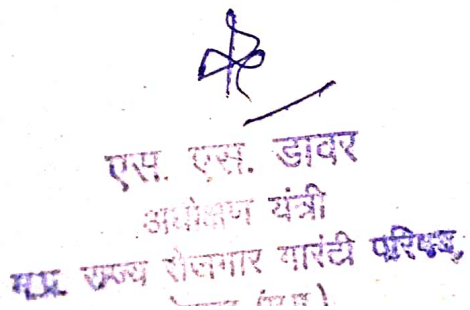 एस. एस. डावर
अधीक्षण यंत्री
म.प्र. राज्य रोजगार गारंटी परिषद्,
(म.प्र.)